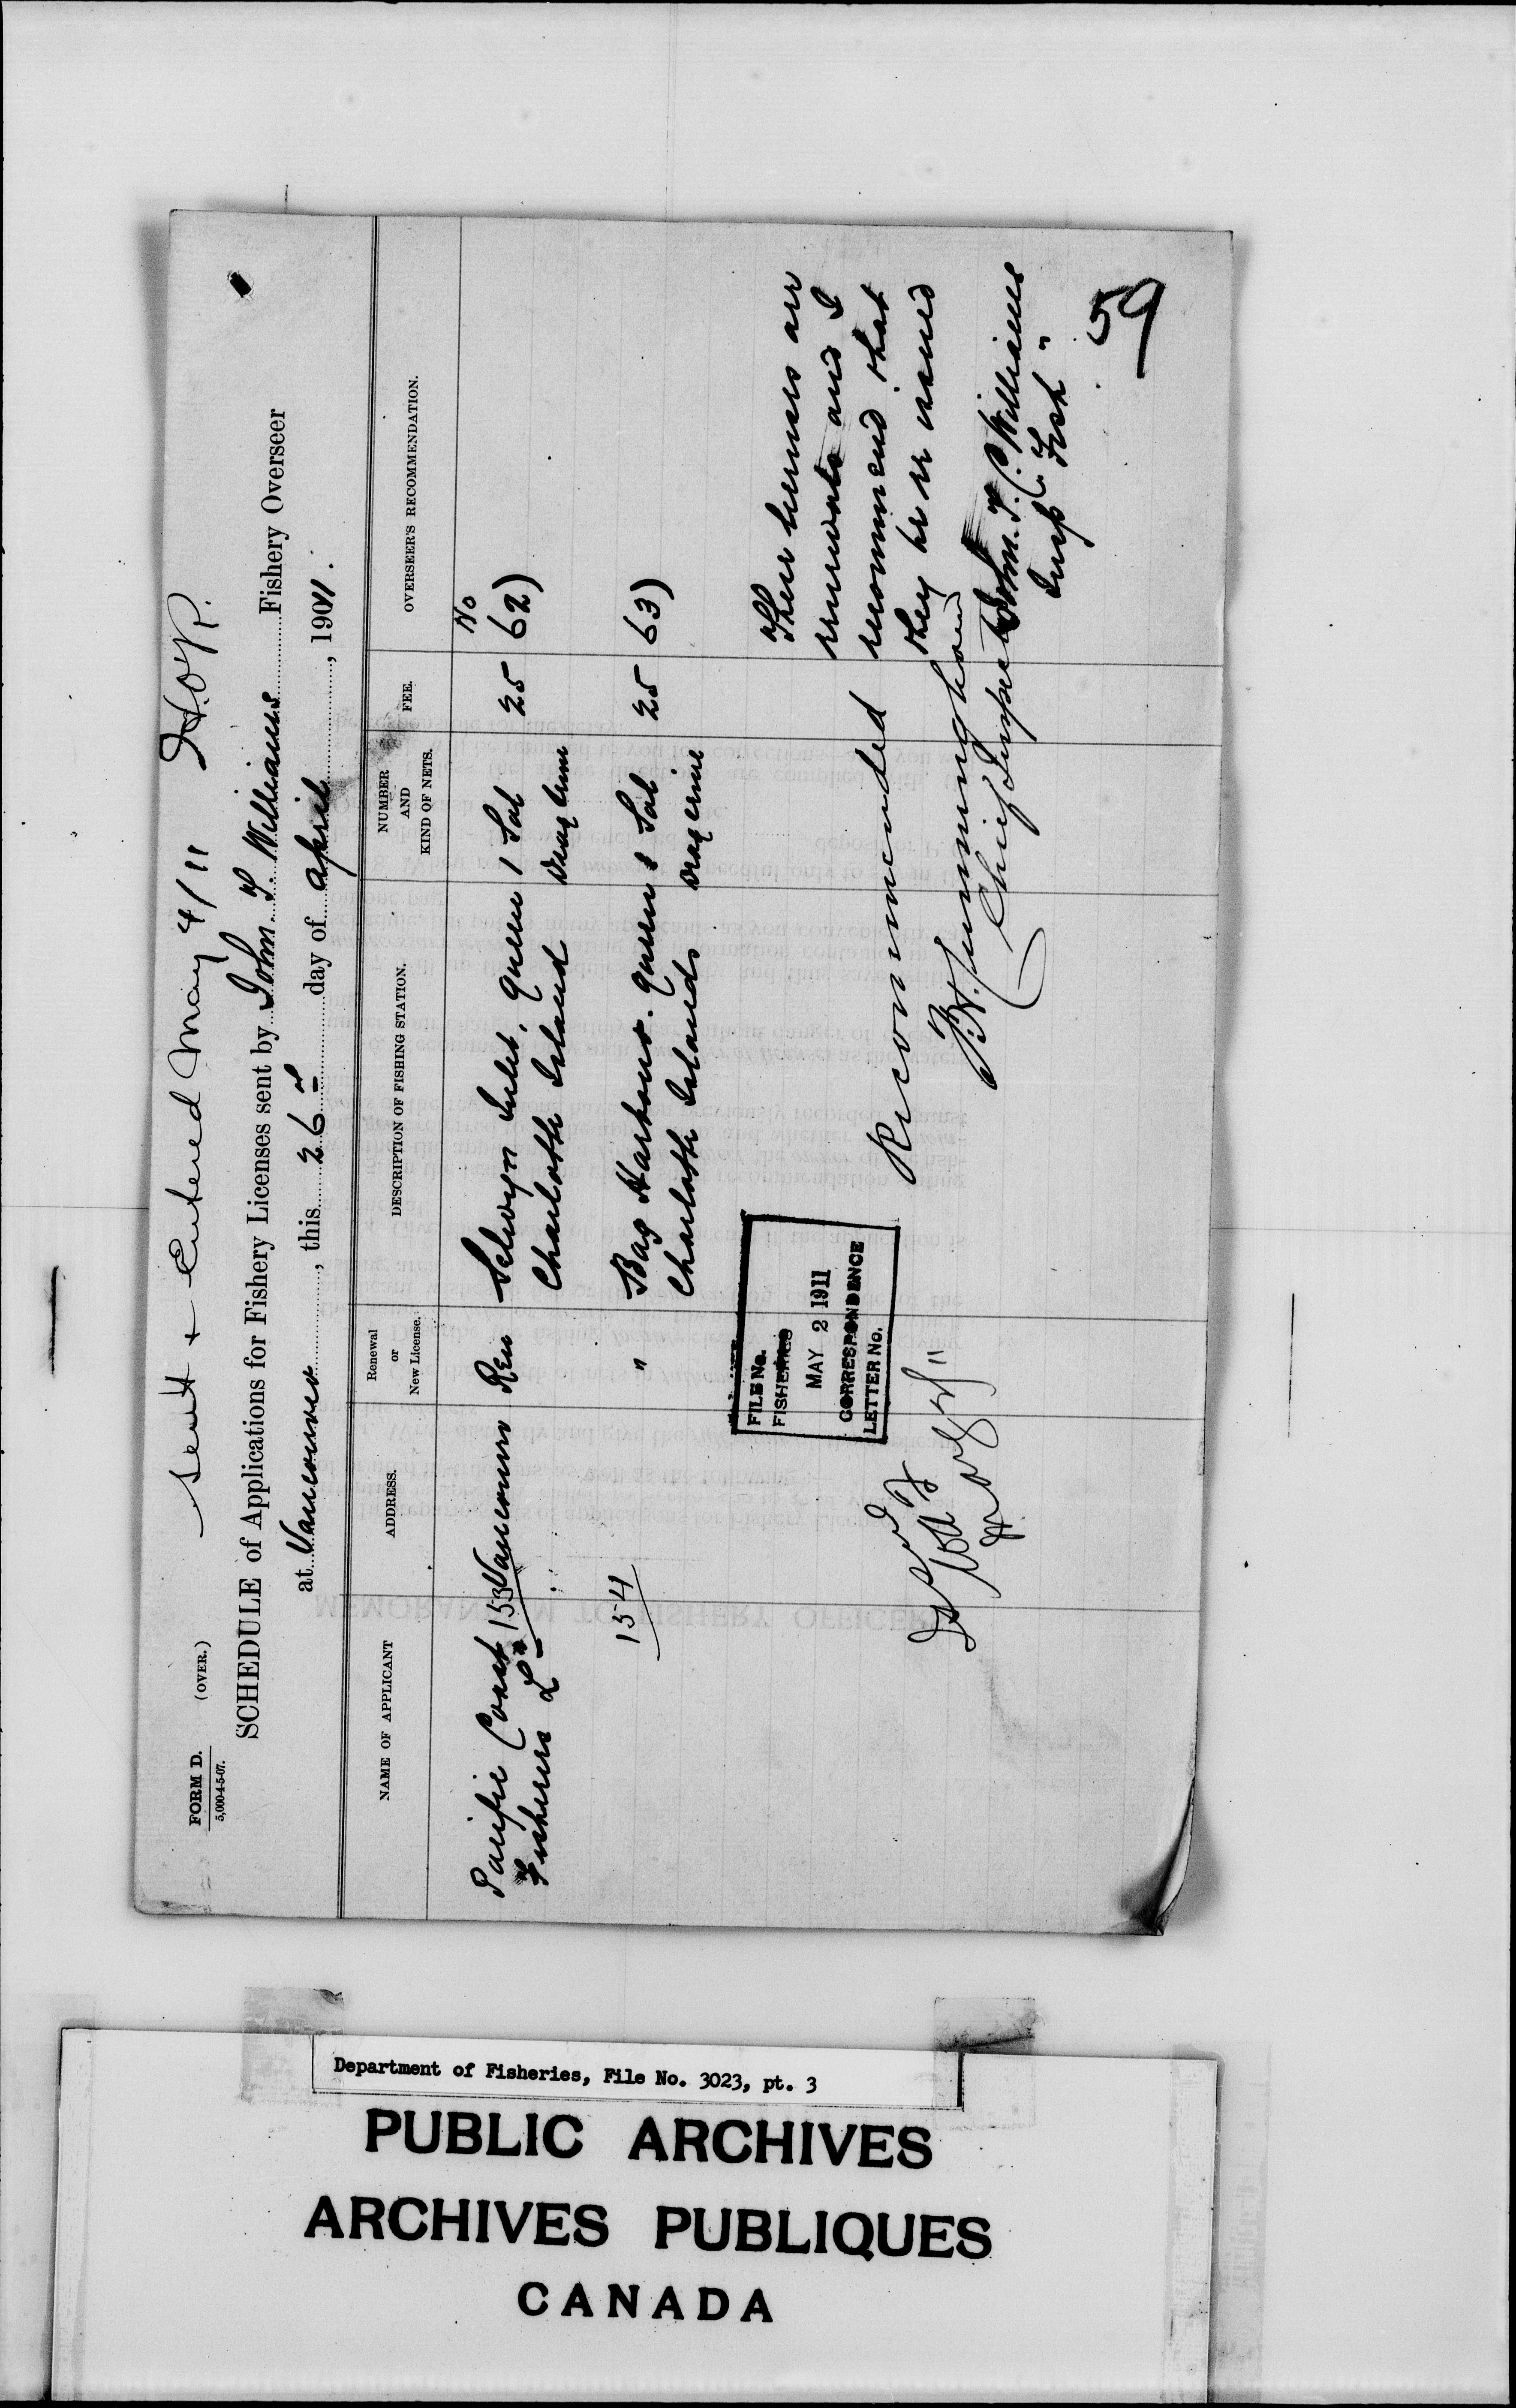 Sent & Entered May 4/11 H.O.R.
FORM D. (OVER.)
5,000-4-5-07.
SCHEDULE of Applications for Fishery Licenses sent by John T Williams Fishery Overseer
at Vancouver, this 26th day of April, 1911.
NAME OF APPLICANT
ADDRESS.
Renewal
or
New License.
DESCRIPTION OF FISHING STATION.
NUMBER
AND
KIND OF NETS.
FEE.
OVERSEER'S RECOMMENDATION.
No
Pacific Coast 153 Vancouver Ren Selwyn Inlet, Queen 1 Sal 25 62)
Fisheries Ld Charlotte Island Drag Seine
154 " Bag Harbour. Queen 1 Sal. 25 63)
Charlotte Islands Drag Seine
These licenses are
renewals and I
recommend that
they be re issued
John. T. C. Williams
Insp. of Fish "
Recommended
Cunningham
Chief Inspector
FILE No.
FISHERIES
MAY 2 1911
CORRESPONDENCE
LETTER No.
59
Department of Fisheries, File No. 3023, pt. 3
PUBLIC ARCHIVES
ARCHIVES PUBLIQUES
CANADA